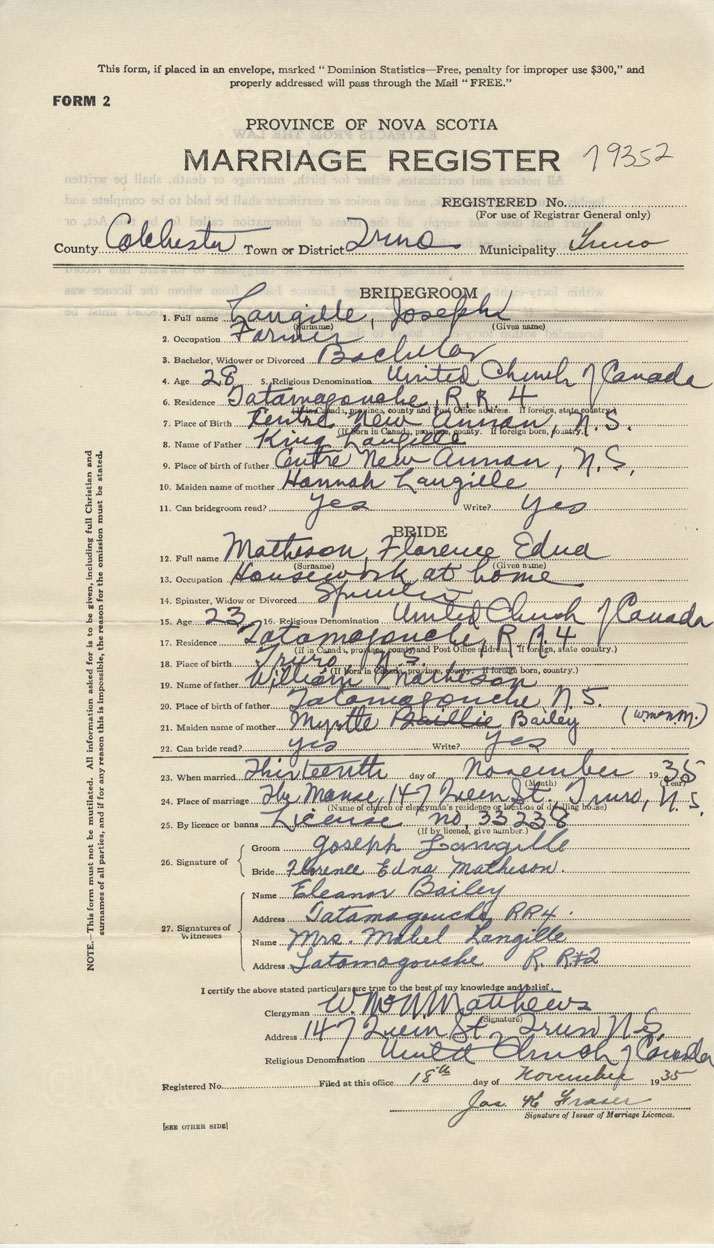 This form, if placed in an envelope, marked "Dominion Statistics—Free, penalty for improper use $300," and
properly addressed will pass through the Mail "FREE."
FORM 2
PROVINCE OF NOVA SCOTIA
MARRIAGE REGISTER 19352
REGISTERED No.
(For use of Registrar General only)
County Colchester Town or District Truro Municipality Truro
BRIDEGROOM
1. Full name Langille, Joseph
(Surname) (Given name)
2. Occupation Farmer
3. Bachelor, Widower or Divorced Bachelor
4. Age 28 5. Religious Denomination United Church of Canada
6. Residence Tatamagouche, R.R. 4
(If in Canada, province, county and Post Office address. If foreign, state country.)
7. Place of Birth Centre New Annan, N.S.
(If born in Canada, province, county. If foreign born, country.)
8. Name of Father King Langille
9. Place of birth of father Centre New Annan, N.S.
10. Maiden name of mother Hannah Langille
11. Can bridegroom read? yes Write? yes
BRIDE
12. Full name Matheson, Florence Edna
(Surname) (Given name)
13. Occupation Housework at home
14. Spinster, Widow or Divorced Spinster
15. Age 23 16. Religious Denomination United Church of Canada
17. Residence Tatamagouche, R R.4
(If in Canada, province, county and Post Office address. If foreign, state country.)
18. Place of birth Truro N.S.
(If born in Canada, province, county. If foreign born, country.)
19. Name of father William Matheson
20. Place of birth of father Tatamagouche, N.S.
21. Maiden name of mother Myrtle Baillie Bailey (W.McN.M.)
22. Can bride read? yes Write? yes
23. When married Thirteenth day of November 1935
(Month) (Year)
24. Place of marriage The Manse, 147 Queen St., Truro, N.S.
(Name of church or clergyman's residence or location of dwelling house)
25. By licence or banns License no, 33238
(If by licence, give number.)
26. Signature of
Groom Joseph Langille
Bride Florence Edna Matheson.
27. Signatures of
Witnesses
Name Eleanor Bailey
Address Tatamagouche, RR4.
Name Mrs. Mabel Langille
Address Tatamagouche R. R#2
I certify the above stated particulars are true to the best of my knowledge and belief.
Clergyman W. McN. Matthews
(Signature)
Address 147 Queen St. Truro N.S.
Religious Denomination United Church of Canada
Registered No. Filed at this office 18th day of November 1935
Jas. K. Fraser
Signature of Issuer of Marriage Licences.
[SEE OTHER SIDE]
NOTE.—This form must not be mutilated. All information asked for is to be given, including full Christian and
surnames of all parties, and if for any reason this is impossible, the reason for the omission must be stated.